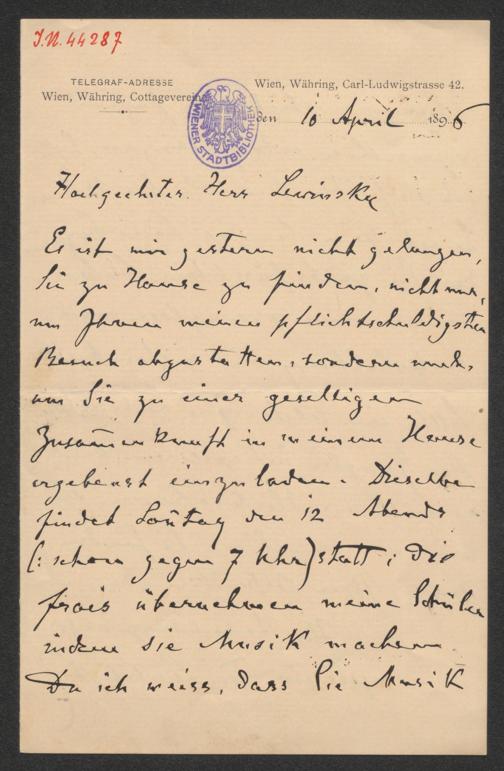 J.N. 44287
TELEGRAF-ADRESSE
Wien, Währing, Cottageverein
Wien, Währing, Carl-Ludwigstrasse 42.
WIENER STADTBIBLIOTHEK
den 10 April 1896
Hochgeehrter Herr Lewinsky
Es ist mir gestern nicht gelungen,
Sie zu Hause zu finden, nicht nur,
um Ihnen meinen pflichtschuldigsten
Besuch abzustatten, sondern auch,
um Sie zu einer geselligen
Zusam̅enkunft in meinem Hause
ergebenst einzuladen. Dieselbe
findet Son̅tag den 12 Abends
(: schon gegen 7 Uhr) statt; die
frais übernehmen meine Schüler
indem sie Musik machen.
Da ich weiss, dass Sie Musik